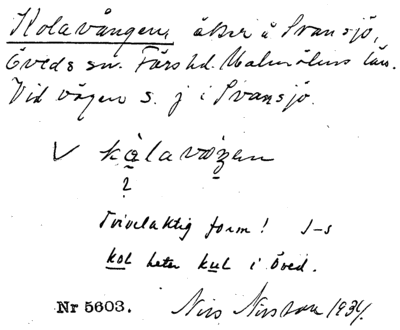 Kolavångens åker å Svansjö,
Öveds sn. Färs hd. Malmöhus län.
Vid vägen s. j i Svansjö.
V kàlavɷŋen
?
Tvivelaktig form! J-s
kol heter kul i Öved.
Nr 5603. Nils Nilsson 1934.